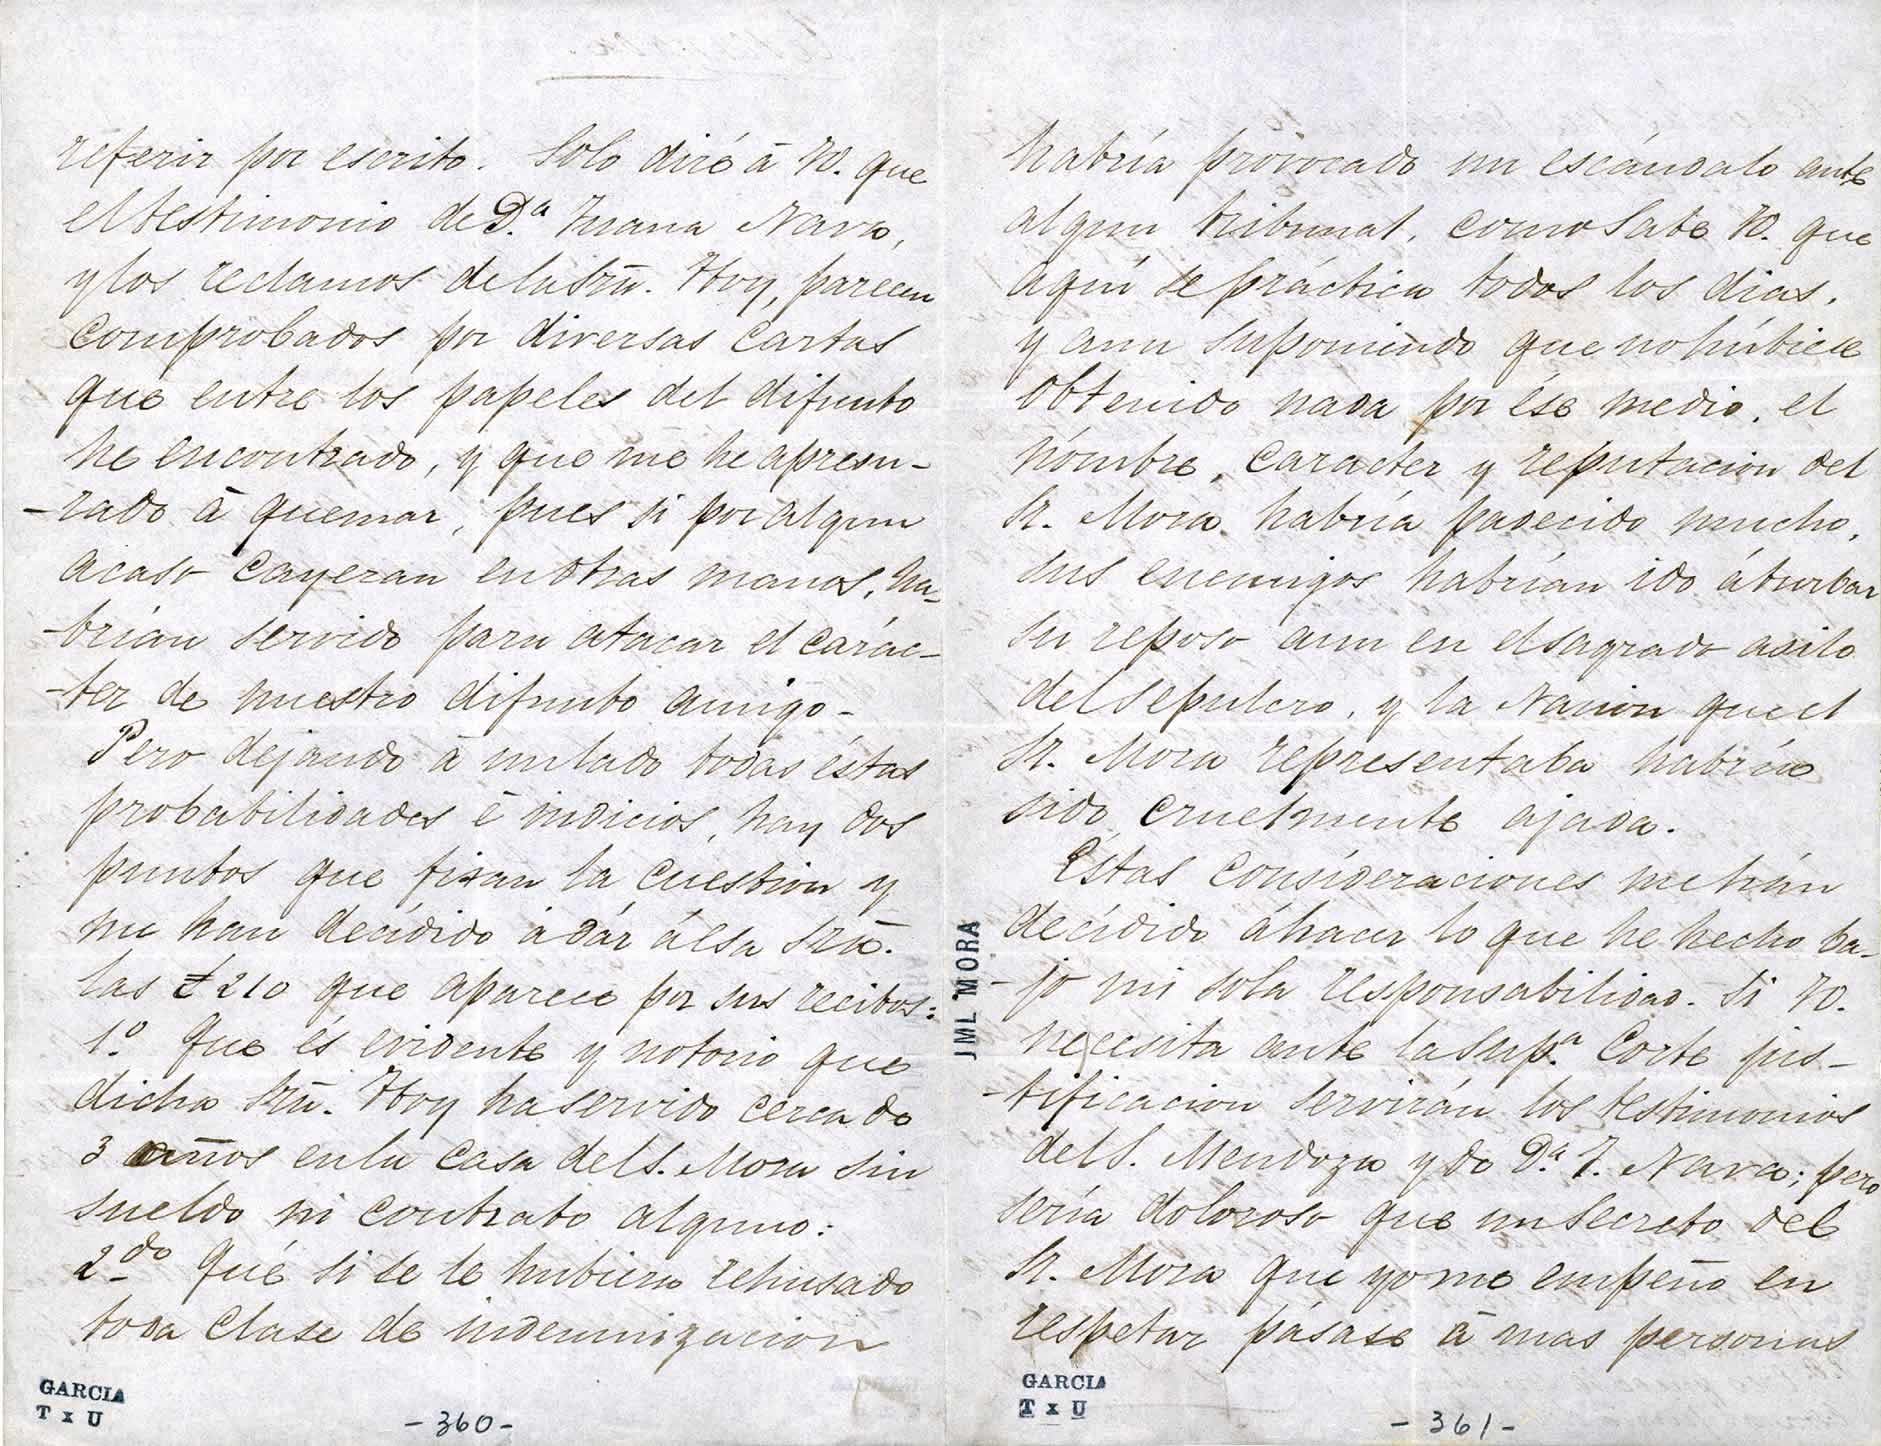 referir por escrito. Solo diré á VD. que
el testimonio de D.ª Juana Nava,
y los reclamos de la Srā. Hoy, parecen
comprobados por diversas cartas
que entre los papeles del difunto
he encontrado, y que me he apresu-
-rado á quemar, pues si por algun
acaso cayeran en otras manos, ha-
-brían servido para atacar el carác-
-ter de nuestro difunto amigo-
Pero dejando á un lado todas éstas
probabilidades é indicios, hay dos
puntos que fixan la cuestion y
me han decídido á dár á esa Srā.
las £210 que aparece por sus recibos:
1.º Que és evidente y notorio que
dicha Srā. Hoy ha servido cerca de
3 años en la casa del S. Mora sin
sueldo ni contrato alguno:
2.do Qué si se le hubiera rehusado
toda clase de indemnizacion
GARCIA
T x U
-360-
habría provocado un escándalo ante
algun tribunal, como Sabe VD. que
aquí se práctica todos los dias.
y aun suponiendo que no húbiese
obtenido nada por ése medio, el
nómbre, caracter y reputacion del
Sr. Mora habría padecido mucho,
sus enemigos habrían ido á turbar
su reposo aun en el sagrado asilo
del sepulcro, y la Nacion que el
Sr. Mora representaba habría
sido cruelmente ajada.
Éstas consíderaciones me hán
decídido á hacer lo que he hecho ba-
-jo mi sola responsabilidad. Si VD.
necesita ante la Sup.ª Corte jus-
-tificacion servirán los testimonios
del S. Mendoza y de D.ª J. Nava; pero
sería doloroso que un secreto del
Sr. Mora que yo me empeño en
respetar pásase á mas personas
JML MORA
GARCIA
T x U
-361-